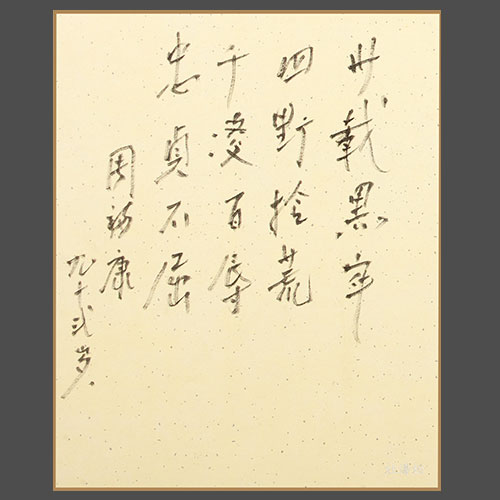 卅載黑牢
四野拾荒
千凌百辱
忠貞不屈
周康
九十弍岁